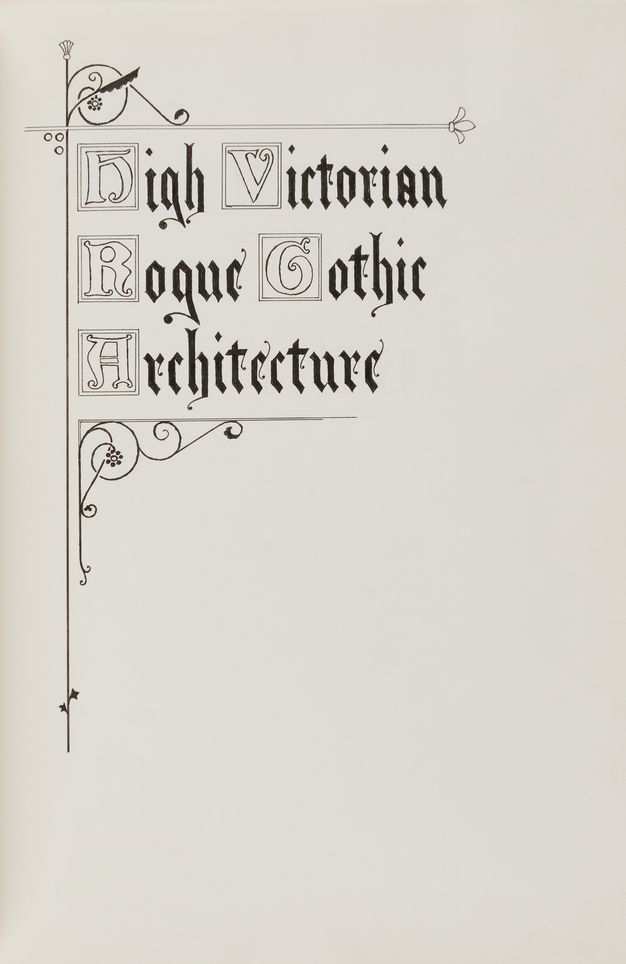 High Victorian
Rogue Gothic
Architecture